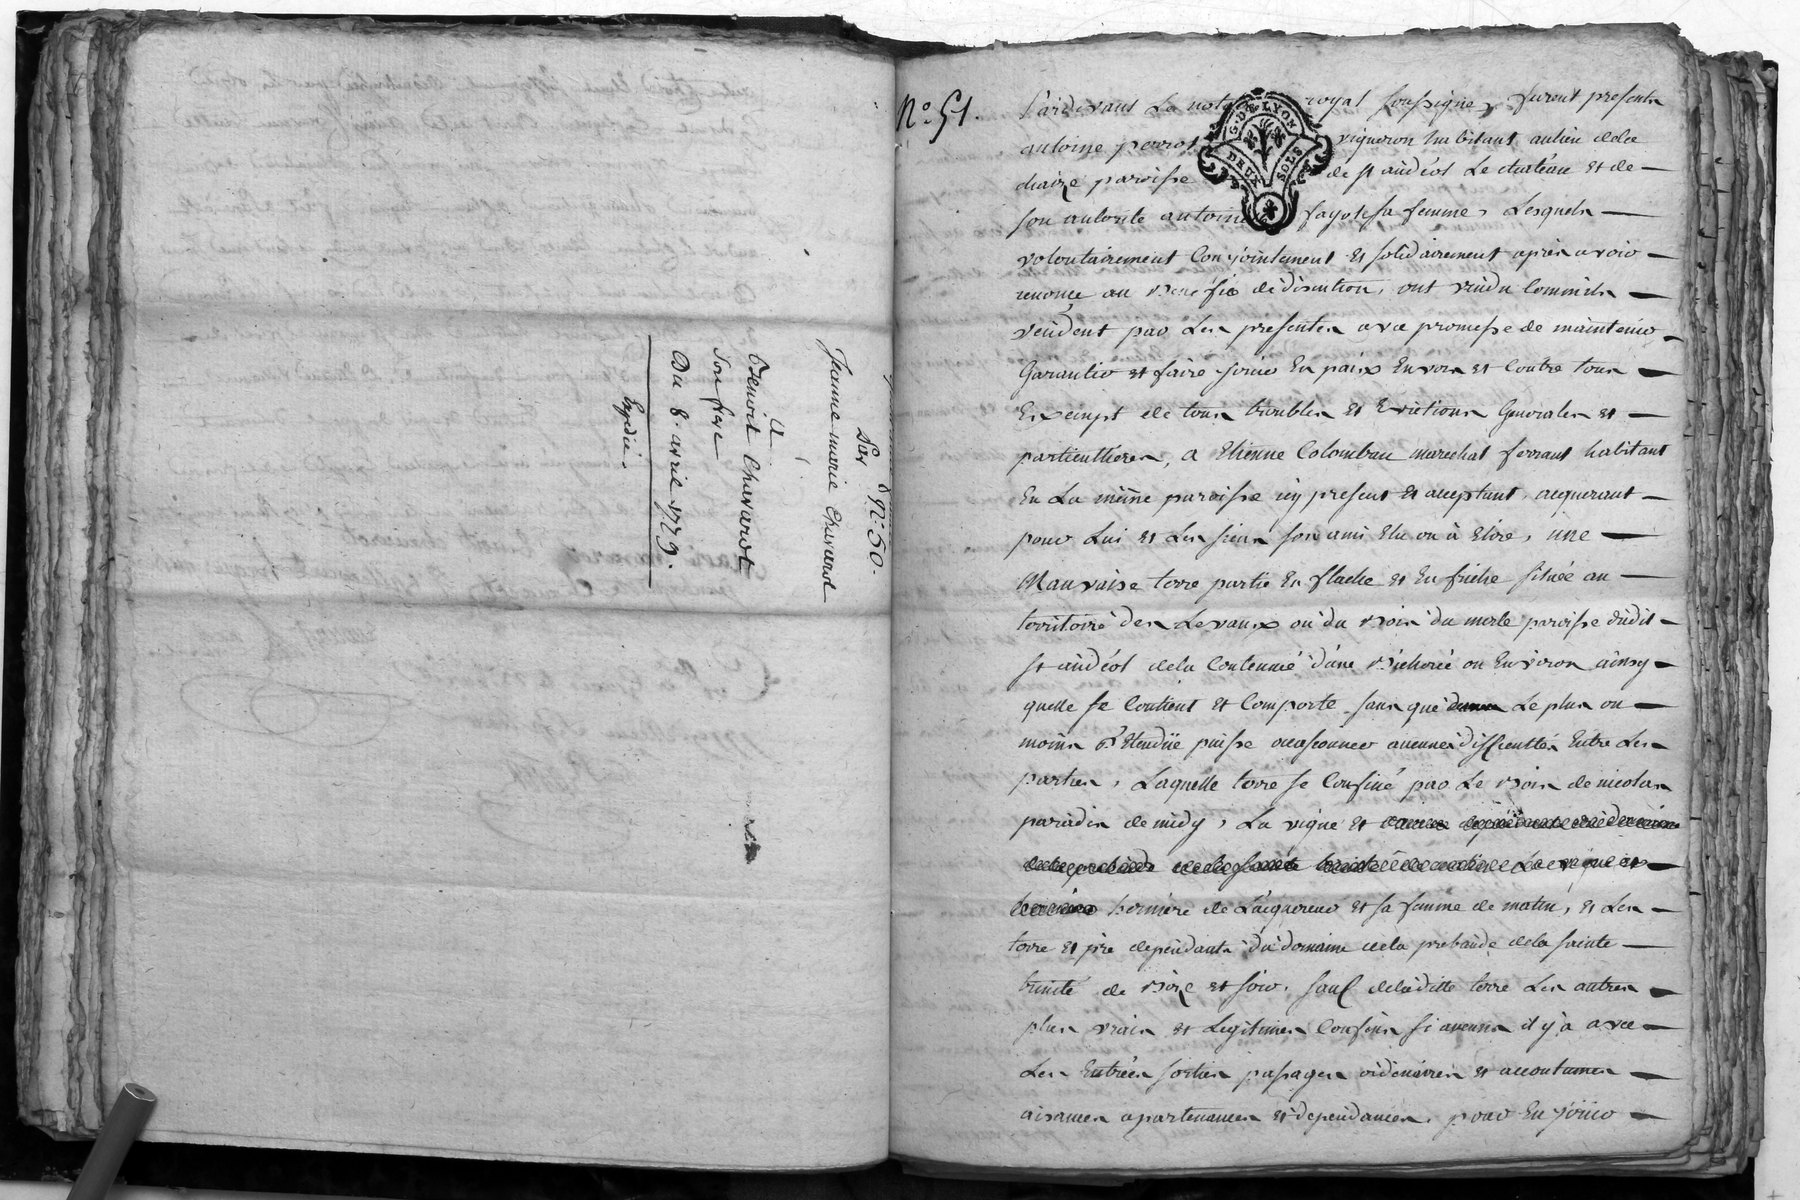 N°. 50.
Par
Jeanne marie Chavarot
a
Benoist Chavarot
son frere
Du 8. avril 1779.
Expedié.
N°. 51.
Pardevant Le nota royal soussigné, furent presents
antoine perrot vigneron habitant au lieu de
paroisse de st andéol Le chateau et de
son autorité antoine fayot sa femme, Lesquels
volontairement Conjointement et solidairement après avoir
renoncé au Benefice de discution, ont vendu Comme ils
vendent par Les presentes avec promesse de maintenir
Garantir et faire jouir En paix Envers et Contre tous
Exempt de tous troubles et Evictions Generales et
particulieres, a Etienne Colombau marechal ferrant habitant
En La même paroisse icy present et acceptant, acquerant
pour Lui et Les siens son ami Elu ou à Elire, une
Mauvaise terre partie En flache et En friche située au
territoire des Levaux ou du Bois du merle paroisse dudit
st andéol de la Contenue d'une Bicherée ou Environ ainsy
quelle se Contient et Comporte sans que Le plus ou
moins d'Etendüe puisse occasionner aucunes difficultés Entre Les
parties, Laquelle terre se Confine par Le Bois de nicolas
paradis de midy, La vigne et
La vigne et
herniere de L'acquereur et sa femme de matin, et Les
terre et pré dependants du domaine de la prebande de la sainte
trinité de Bize et soir, sauf de la ditte terre Les autres
plus vrais et Legitimes Confins si aucuns il y a avec
Les Entrées sorties passages ordinaires et accoutumés
aisances apartenances et dependances, pour En jouir
G.D. DE LYON
DEUX SOLS